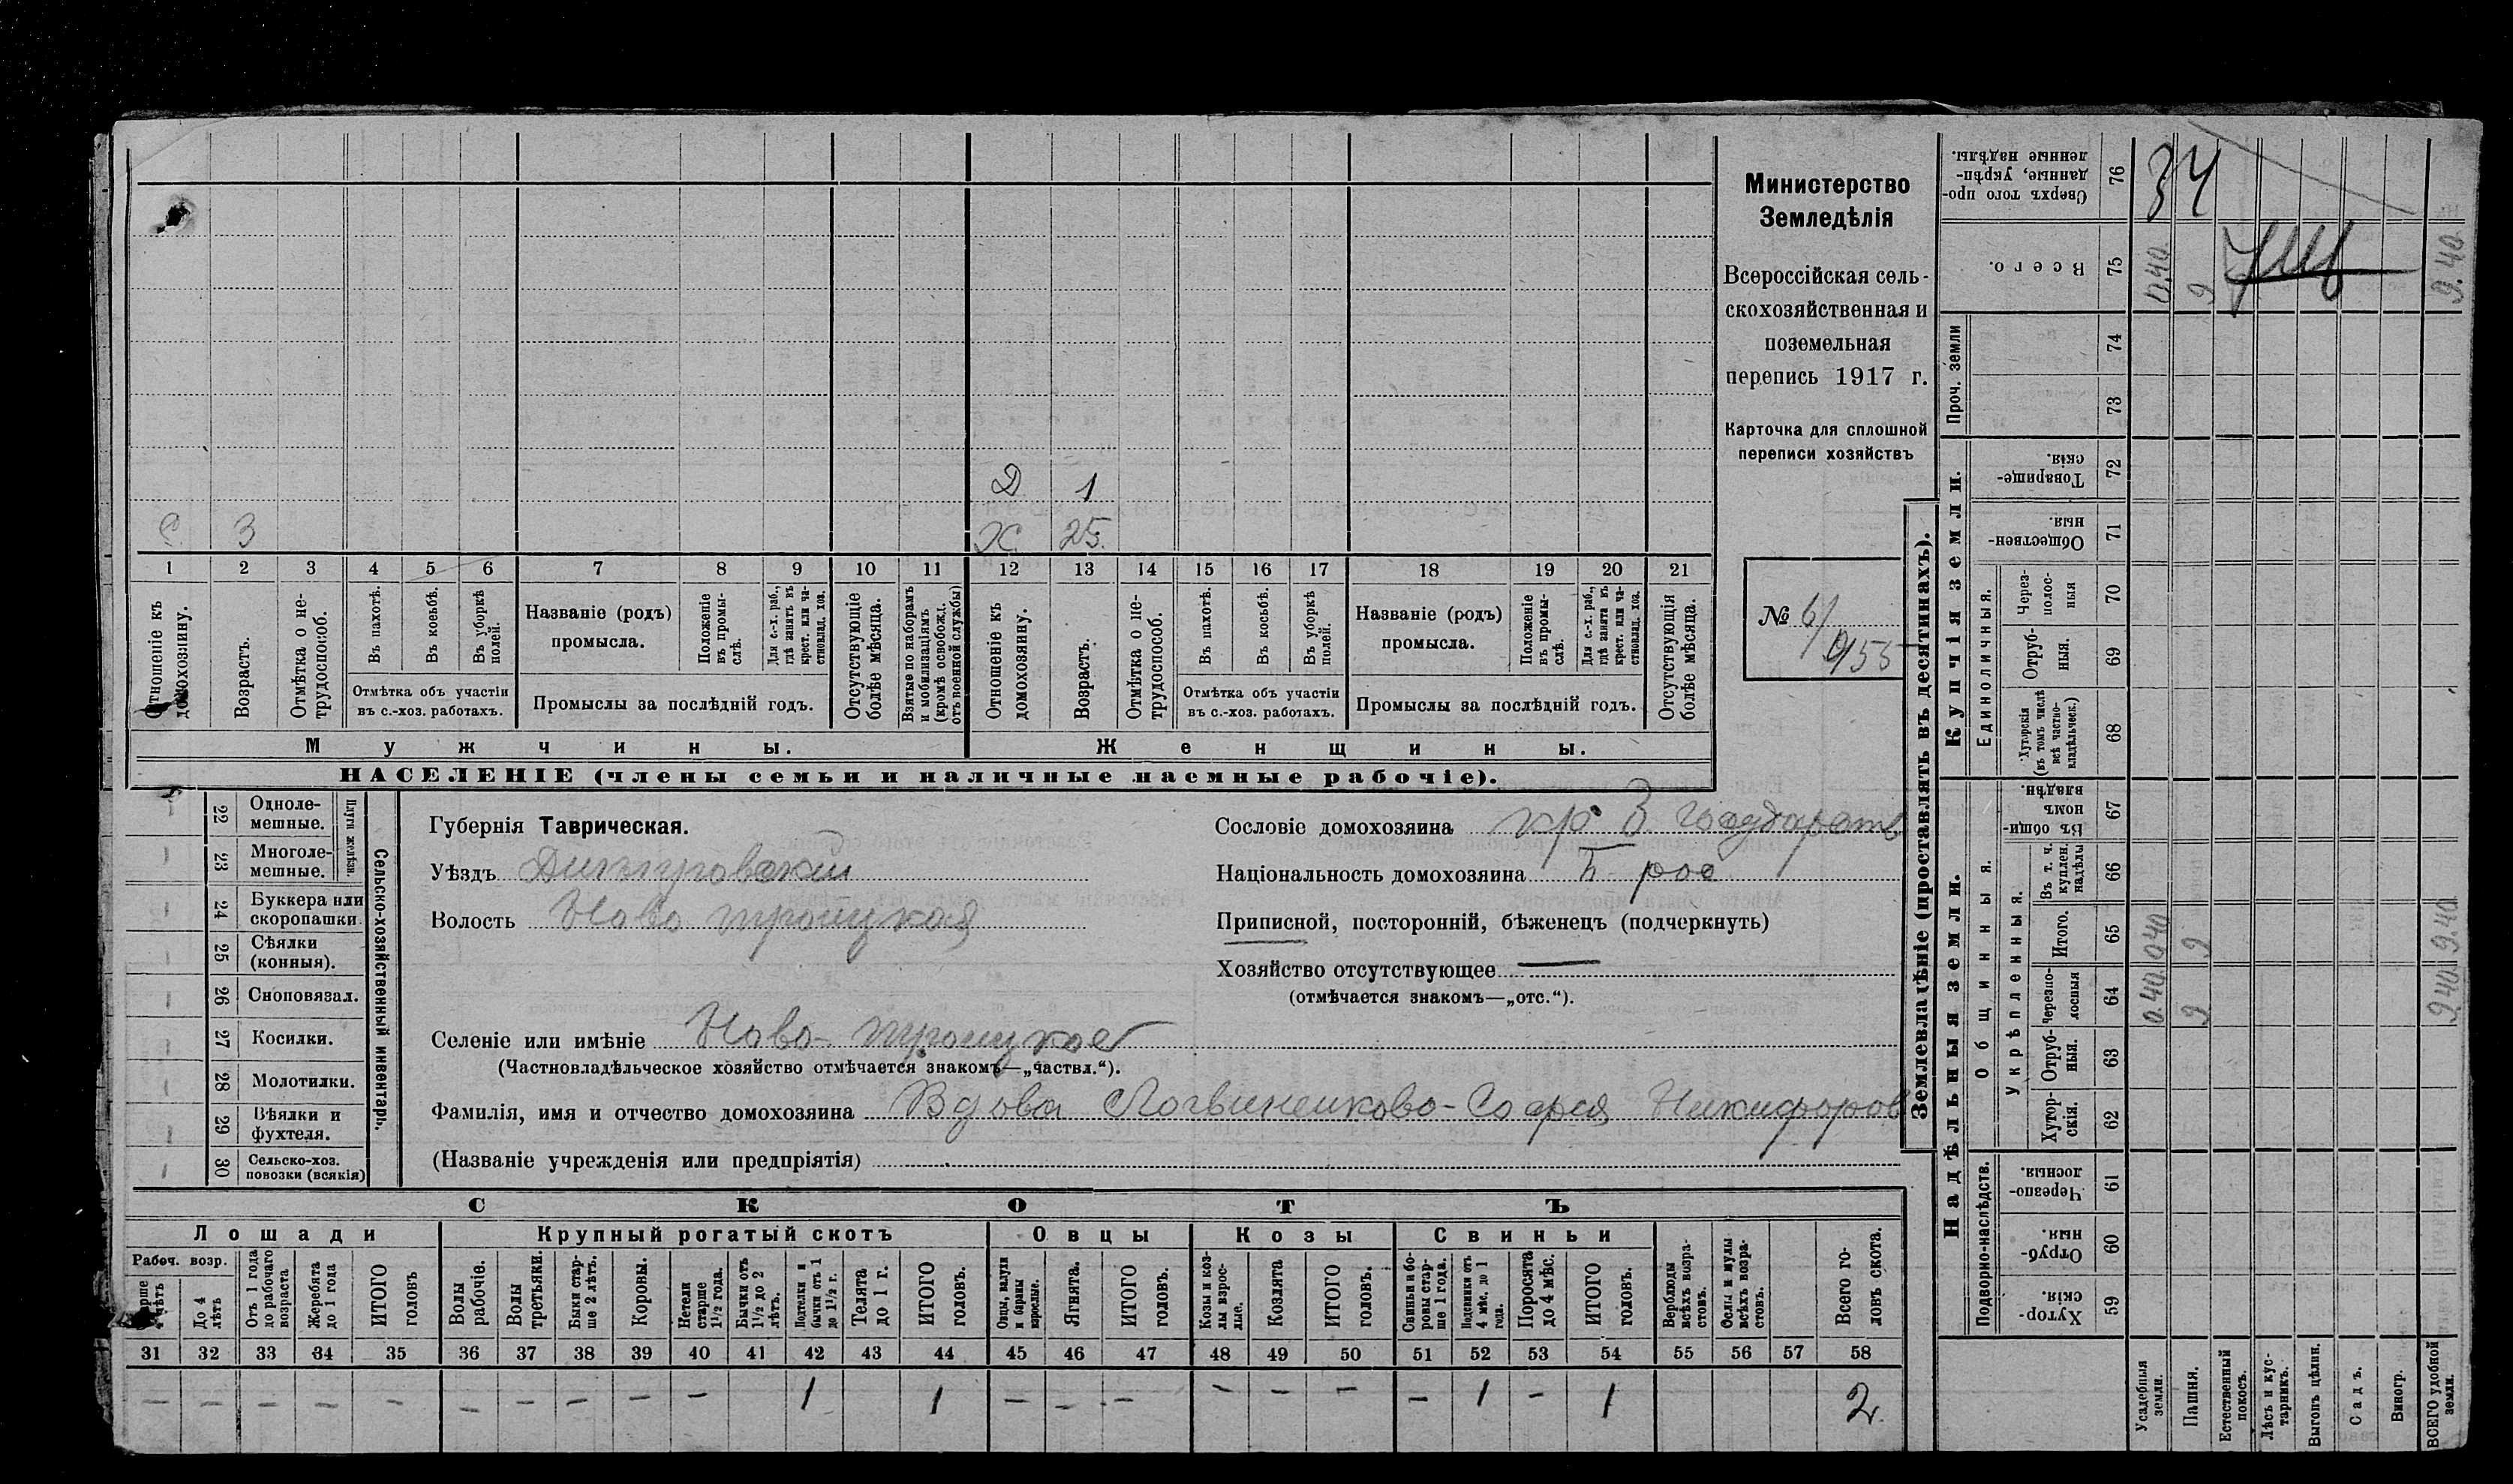 Министерство
Земледѣлія
Всероссійская сель-
скохозяйственная и
поземельная
перепись 1917 г.
Карточка для сплошной
переписи хозяйствъ
№ 6/
Д 1
С 3 Х 25.
1 2 3 4 5 6 7 8 9 10 11 12 13 14 15 16 17 18 19 20 21
Отношеніе къ домохозяину.
Возрастъ.
Отмѣтка о не-трудоспособ.
Въ пахотѣ.
Въ косьбѣ.
Въ уборкѣ полей.
Отмѣтка объ участіи
въ с.-хоз. работахъ.
Названіе (родъ)
промысла.
Положеніе въ промы-слѣ.
Для с.-х. раб., гдѣ занятъ въ крест. или ча-стновлад. хоз.
Промыслы за послѣдній годъ.
Отсутствующіе болѣе мѣсяца.
Взятые по наборамъ и мобилизаціямъ (кромѣ освобожд. отъ военной службы)
Отношеніе къ домохозяину.
Возрастъ.
Отмѣтка о не-трудоспособ.
Въ пахотѣ.
Въ косьбѣ.
Въ уборкѣ полей.
Отмѣтка объ участіи
въ с.-хоз. работахъ.
Названіе (родъ)
промысла.
Положеніе въ промы-слѣ.
Для с.-х. раб., гдѣ занята въ крест. или ча-стновлад. хоз.
Промыслы за послѣдній годъ.
Отсутствующія болѣе мѣсяца.
Мужчины. Женщины.
НАСЕЛЕНІЕ (члены семьи и наличные наемные рабочіе).
Сельско-хозяйственный инвентарь.
Плуги желѣзн.
22 Одноле-мешные.
23 Многоле-мешные.
24 Буккера или скоропашки
25 Сѣялки (конныя).
26 Сноповязал.
27 Косилки.
28 Молотилки.
29 Вѣялки и фухтеля.
30 Сельско-хоз. повозки (всякія)
Губернія Таврическая.
Уѣздъ Днепровский
Волость Ново троицкая
Селеніе или имѣніе Ново-троицкое
(Частновладѣльческое хозяйство отмѣчается знакомъ—„частвл.“).
Фамилія, имя и отчество домохозяина Вдова Логвиненкова-София Никифоров
(Названіе учрежденія или предпріятія)
Сословіе домохозяина кр
Національность домохозяина
Приписной, посторонній, бѣженецъ (подчеркнуть)
Хозяйство отсутствующее —
(отмѣчается знакомъ—„отс.“).
СКОТЪ
Лошади Крупный рогатый скотъ Овцы Козы Свиньи
Рабоч. возр.
Старше 4 лѣтъ
До 4 лѣтъ
Отъ 1 года до рабочаго возраста
Жеребята до 1 года
ИТОГО головъ
Волы рабочіе.
Волы третьяки.
Быки стар-ше 2 лѣтъ.
Коровы.
Нетели старше 1½ года.
Бычки отъ 1½ до 2 лѣтъ.
Подтелки и бычки отъ 1 до 1½ г.
Телята до 1 г.
ИТОГО головъ.
Овцы, валухи и бараны взрослые.
Ягнята.
ИТОГО головъ.
Козы и коз-лы взрос-лые.
Козлята
ИТОГО головъ.
Свиньи и бо-ровы стар-ше 1 года.
Подсвинки отъ 4 мѣс. до 1 года.
Поросята до 4 мѣс.
ИТОГО головъ.
Верблюды всѣхъ возра-стовъ.
Ослы и мулы всѣхъ возра-стовъ.
Всего го-ловъ скота.
31 32 33 34 35 36 37 38 39 40 41 42 43 44 45 46 47 48 49 50 51 52 53 54 55 56 57 58
— — — — — — — — — — 1 1 — — — — — — — 1 — 1 2
Землевладѣніе (проставлять въ десятинахъ).
Надѣльныя земли. Купчія земли.
Подворно-наслѣдств.
Общинныя.
Укрѣпленныя.
Единоличныя.
Проч. земли
Хутор-скія. 59
Отруб-ныя 60
Черезпо-лосныя. 61
Хутор-скія. 62
Отруб-ныя. 63
Черезпо-лосныя 64 0.40 9 9.40
Итого. 65 0.40 9 9.40
Въ т. ч. куплен. надѣлы 66
Въ общин-номъ владѣн. 67
Хуторскія (въ томъ числѣ всѣ частно-владѣльческ.) 68
Отруб-ныя. 69
Через-полос-ныя 70
Обществен-ныя. 71
Товарище-скія. 72
73
74
Всего. 75 0.40 9 9.40
Сверхъ того про-данные, укрѣп-ленные надѣлы. 76 34
Усадебныя земли.
Пашня.
Естественный покосъ.
Лѣсъ и кус-тарникъ.
Выгонъ цѣлин.
Садъ.
Виногр.
ВСЕГО удобной земли.